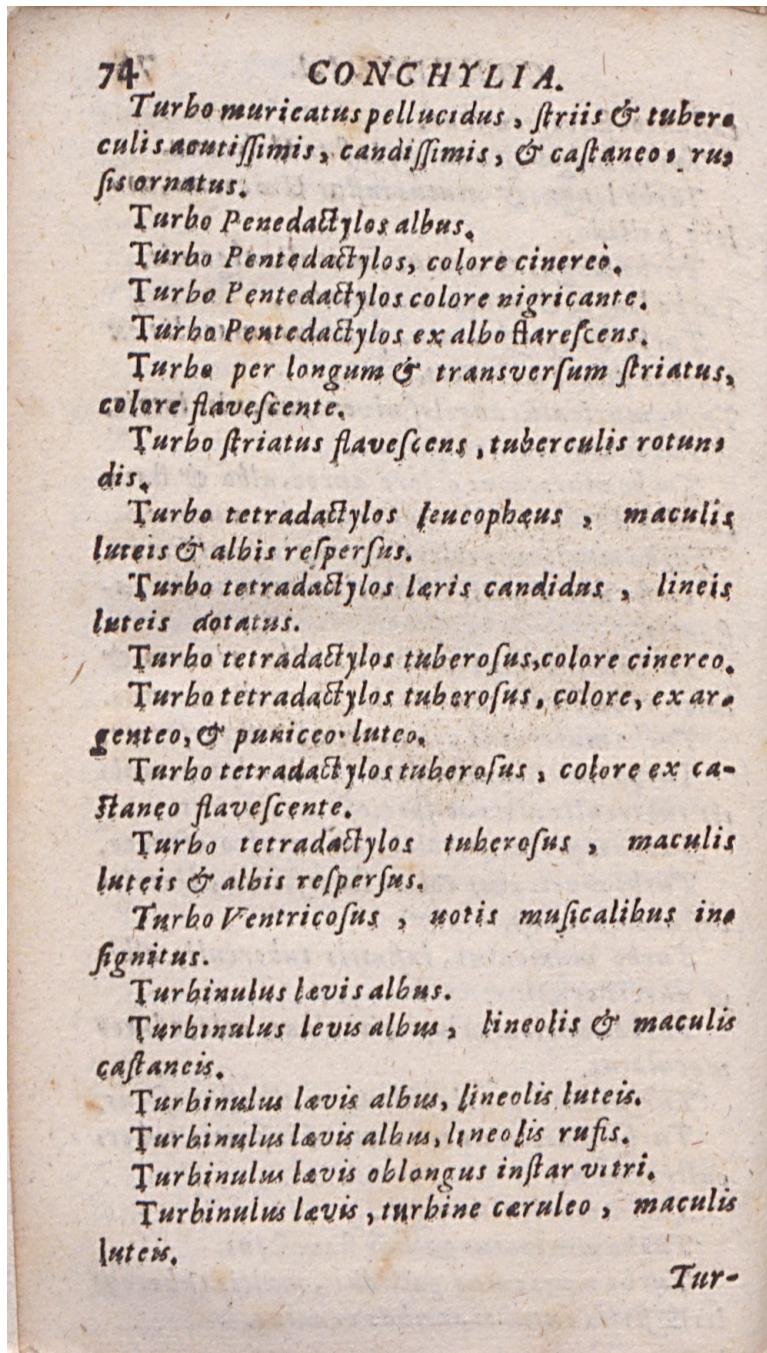 74 CONCHYLIA.
Turbo muricatus pellucidus, ſtriis & tuber-
culis acutiſſimis, candiſſimis, & caſtaneo-ru-
fis ornatus.
Turbo Penedactylos albus.
Turbo Pentedactylos, colore cinereo.
Turbo Pentedactylos colore nigricante.
Turbo Pentedactylos ex albo flareſcens.
Turbo per longum & transverſum ſtriatus,
colore flaveſcente.
Turbo ſtriatus flaveſcens, tuberculis rotun-
dis.
Turbo tetradactylos leucophæus, maculis
luteis & albis reſperſus.
Turbo tetradactylos læris candidus, lineis
luteis dotatus.
Turbo tetradactylos tuberoſus, colore cinereo.
Turbo tetradactylos tuberoſus, colore, ex ar-
genteo, & puniceo-luteo.
Turbo tetradactylos tuberoſus, colore ex ca-
ſtaneo flaveſcente.
Turbo tetradactylos tuberoſus, maculis
luteis & albis reſperſus.
Turbo Ventricoſus, notis muſicalibus in-
ſignitus.
Turbinulus lævis albus.
Turbinulus levis albus, lineolis & maculis
caſtaneis.
Turbinulus lævis albus, lineolis luteis.
Turbinulus lævis albus, lineolis rufis.
Turbinulus lævis oblongus inſtar vitri.
Turbinulus lævis, turbine cæruleo, maculis
luteis.
Tur-